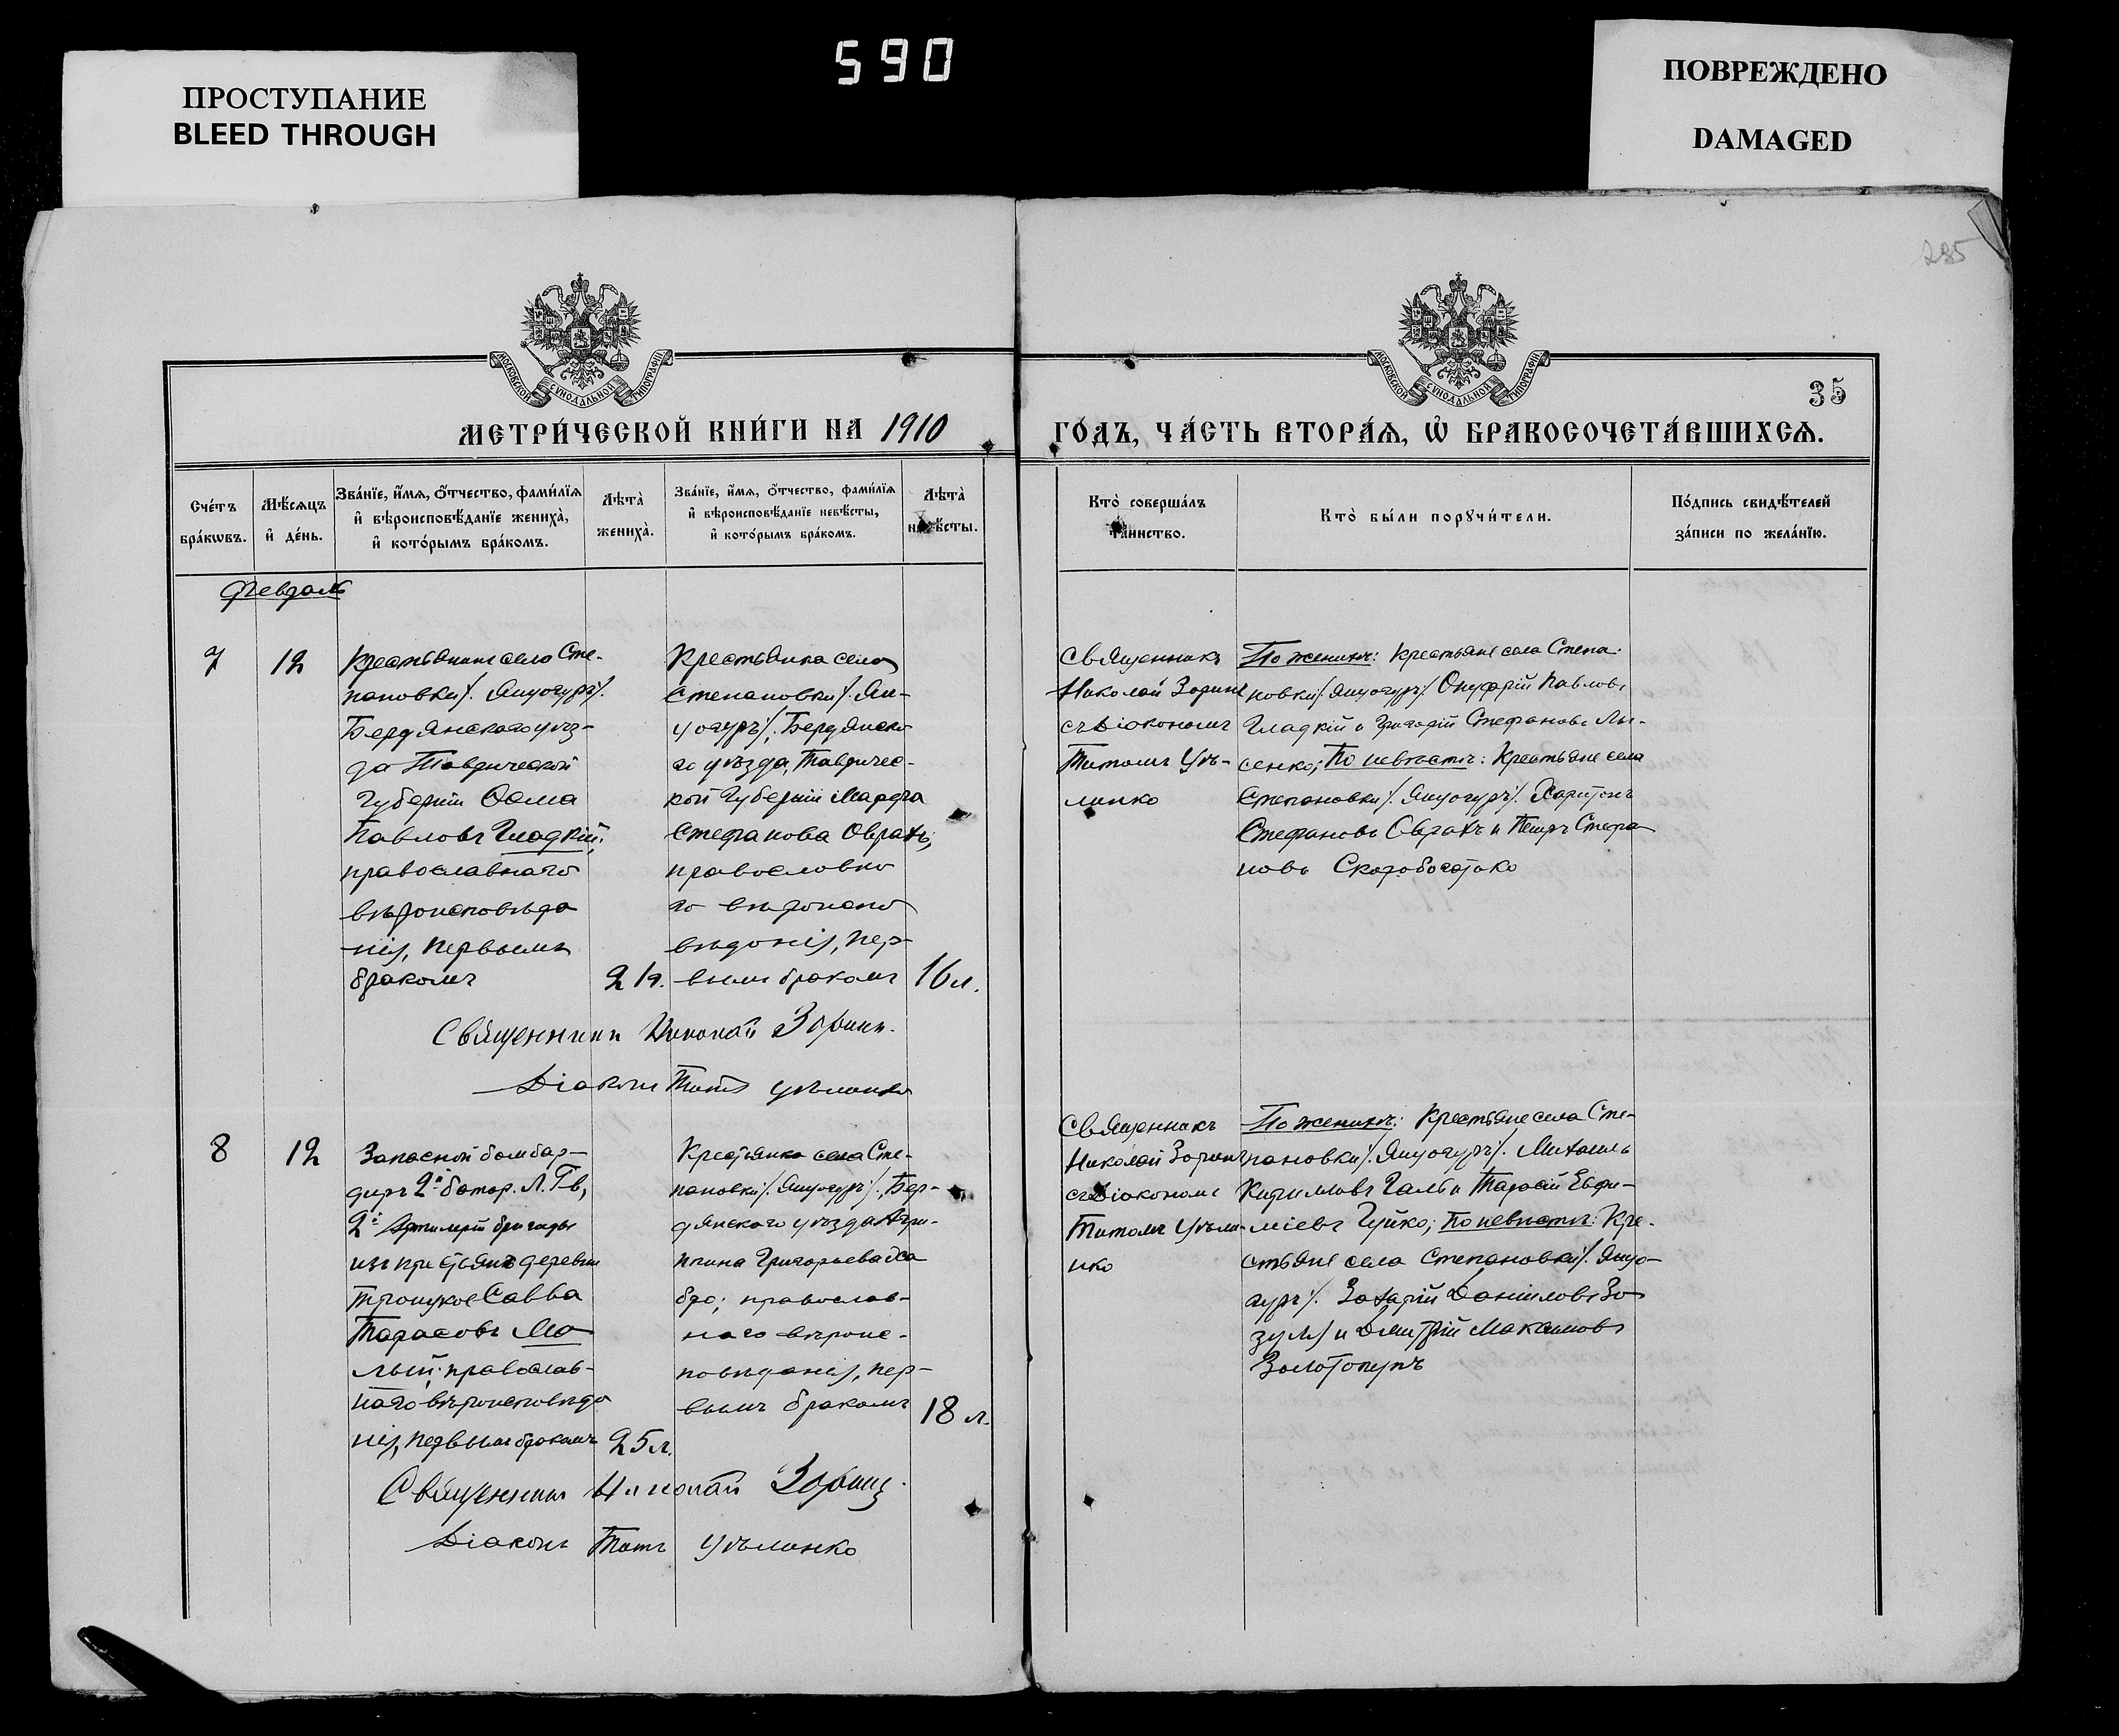 590
ПРОСТУПАНИЕ
BLEED THROUGH
ПОВРЕЖДЕНО
DAMAGED
285
МОСКОВСКОЙ СѴНОДАЛЬНОЙ ТИПОГРАФІИ
МОСКОВСКОЙ СѴНОДАЛЬНОЙ ТИПОГРАФІИ
35
МЕТРИ́ЧЕСКОЙ КНИ́ГИ НА 1910
ГО́ДЪ, ЧА́СТЬ ВТОРА́Ѧ, Ѽ БРАКОСОЧЕТА́ВШИХСѦ.
Сче́тъ
бра́кѡвъ.
Мѣ́сѧцъ
и҆ де́нь.
Зва́нїе, и҆́мѧ, ѻ҆́тчество, фами́лїѧ
и҆ вѣроисповѣ́данїе жениха̀,
и҆ кото́рымъ бра́комъ.
Лѣта̀
жениха̀.
Зва́нїе, и҆́мѧ, ѻ҆́тчество, фами́лїѧ
и҆ вѣроисповѣ́данїе невѣ́сты,
и҆ кото́рымъ бра́комъ.
Лѣта̀
невѣ́сты.
Кто̀ соверша́лъ
та́инство.
Кто̀ бы́ли порꙋчи́тели.
По́дпись свидѣ́телей
за́писи по жела́нїю.
Февраль
7
12
Крестьянинъ села Сте-
пановки /. Янцогуръ /.
Бердянскаго уѣз-
да Таврической
Губерніи Ѳома
Павловъ Гладкій;
православнаго
вѣроисповѣда
нія, первымъ
бракомъ
21 л.
Крестьянка села
Степановки /. Ян-
цогуръ /. Бердянска
го уѣзда, Тавричес-
кой Губерніи Марфа
Стефанова Оврахъ,
православна
го вѣроиспо
вѣданія, пер-
вымъ бракомъ
16 л.
Священникъ
Николай Зоринъ
съ діакономъ
Титомъ Цѣ-
линко
По женихѣ: Крестьяне села Степа-
новки /. Янцогуръ /. Онуфрій Павловъ
Гладкій и Григорій Стефановъ Лы-
сенко; По невѣстѣ: Крестьяне села
Степановки /. Янцогуръ /. Харитонъ
Стефановъ Оврахъ и Петръ Стефа
новъ Скоробогатько
Священникъ Николай Зоринъ.
Діаконъ Титъ Цѣлинко
8
12
Запасной бомбар-
диръ 2й батар. Л. Гв,
2й Артилеріи бригады
изъ крестьянъ деревни
Троицкое Савва
Тарасовъ Ма
лый; православ-
наго вѣроисповѣда
нія, первымъ бракомъ
25 л.
Крестьянка села Сте-
пановки /. Янцогуръ /. Бер-
дянскаго уѣзда Агри-
пина Григорьева
православ-
наго вѣроис-
повѣданія, пер-
вымъ бракомъ
18 л.
Священникъ
Николай Зоринъ
съ діакономъ
Титомъ Цѣли-
нко
По женихѣ: Крестьяне села Сте-
пановки /. Янцогуръ /. Михаилъ
Кириловъ Галь и Тарасій Евфи-
міевъ Гуйко; По невѣстѣ: Кре-
стьяне села Степановки /. Янцо-
гуръ /. Захарій Даніиловъ Зо
зуля и Дмитрій Максимовъ
Золотопупъ
Священникъ Николай Зоринъ.
Діаконъ Титъ Цѣлинко